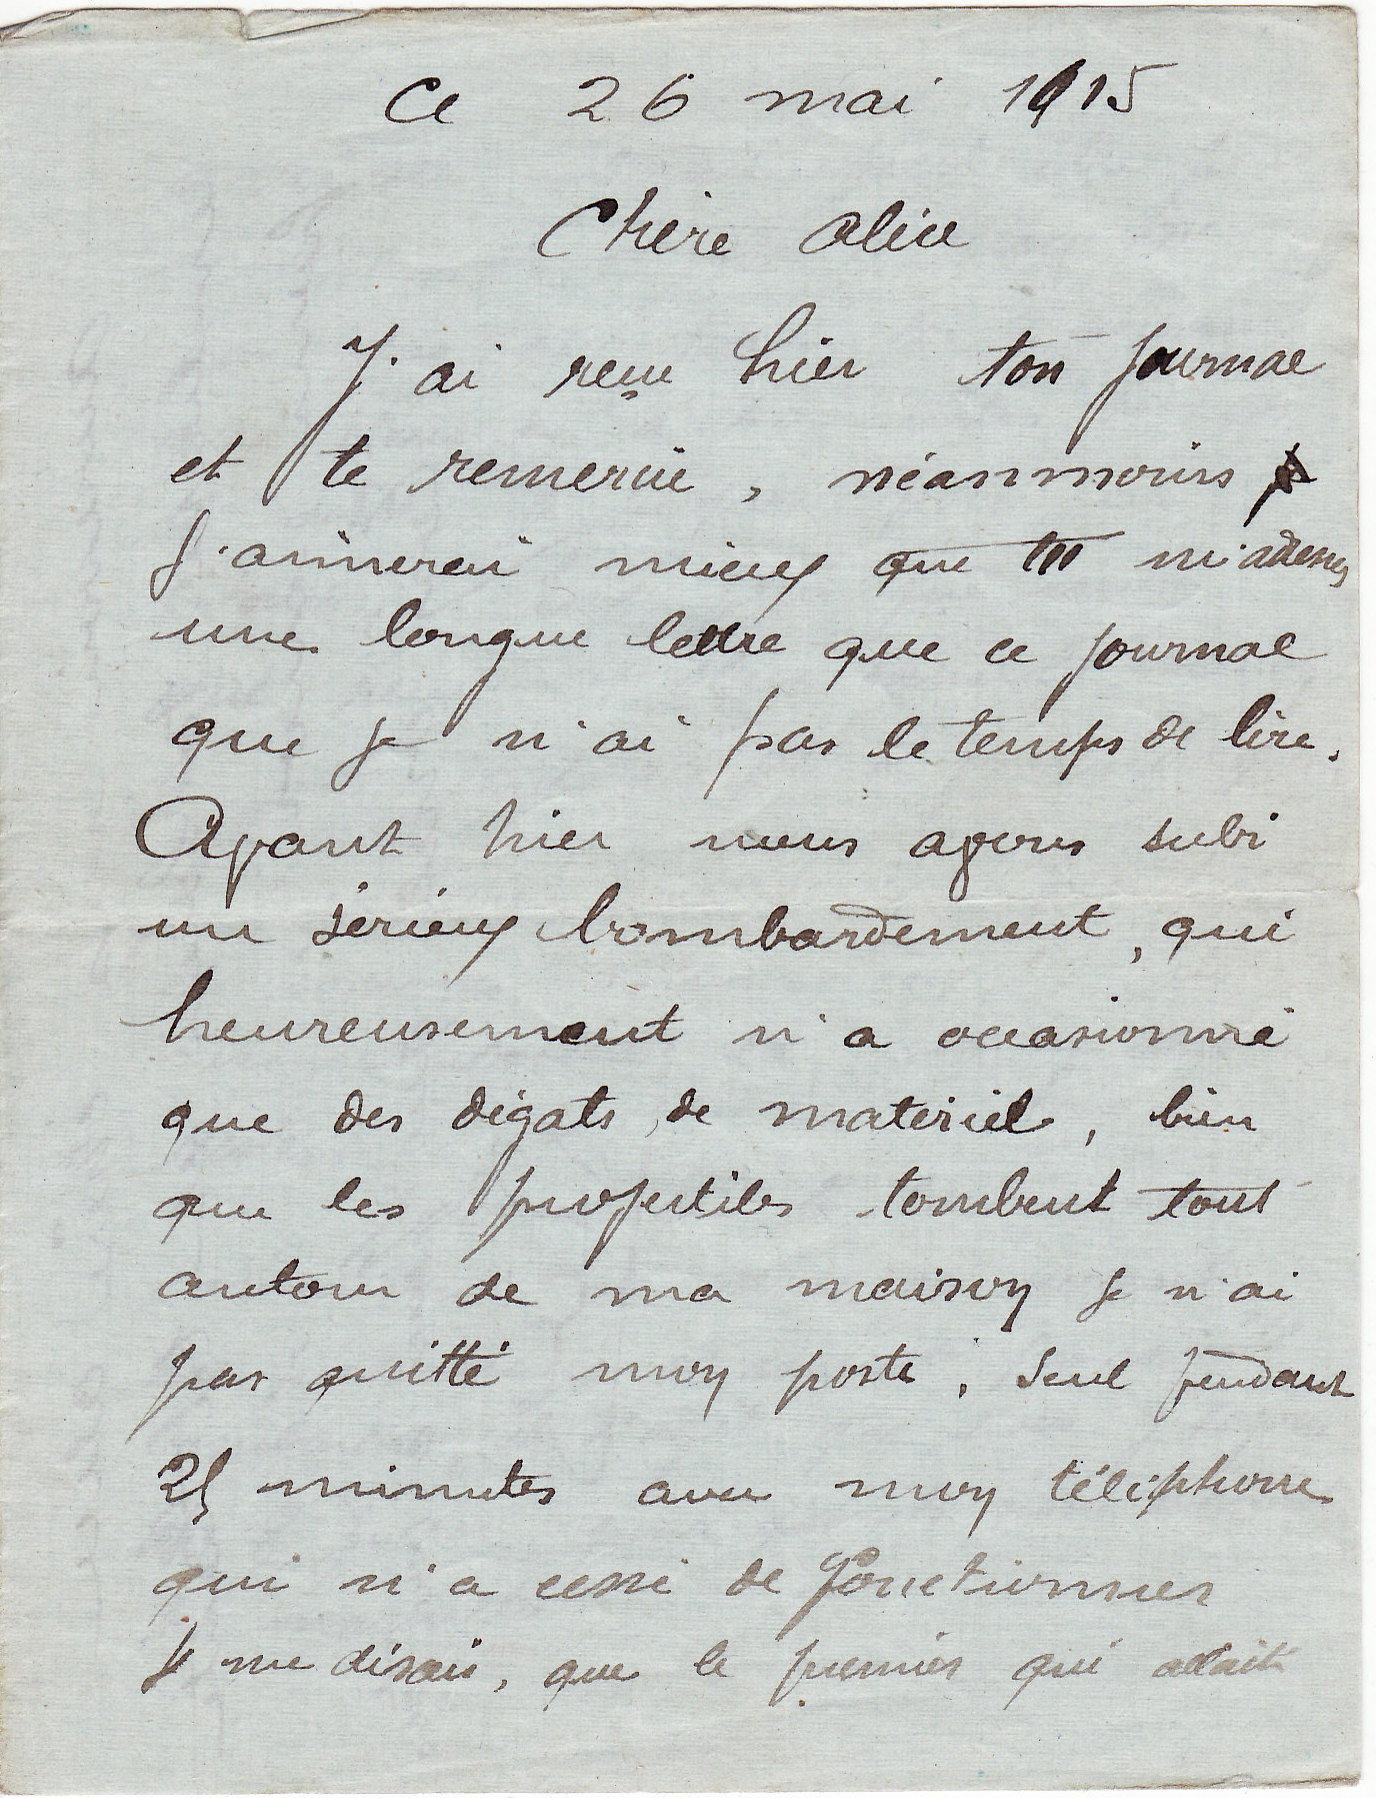 Ce 26 mai 1915
Chère Alice
J'ai reçu hier ton journal
et te remercie, néanmoins
j'aimerai mieux que tu m'adresses
une longue lettre que ce journal
que je n'ai pas le temps de lire.
Ayant hier nous avons subi
un sérieux bombardement, qui
heureusement n'a occasionné
que des dégats de matériel, bien
que les projectiles tombent tout
autour de ma maison je n'ai
pas quitté mon poste, seul pendant
25 minutes avec mon téléphone
qui n'a cessé de fonctionner
je me disais, que le premier qui allait